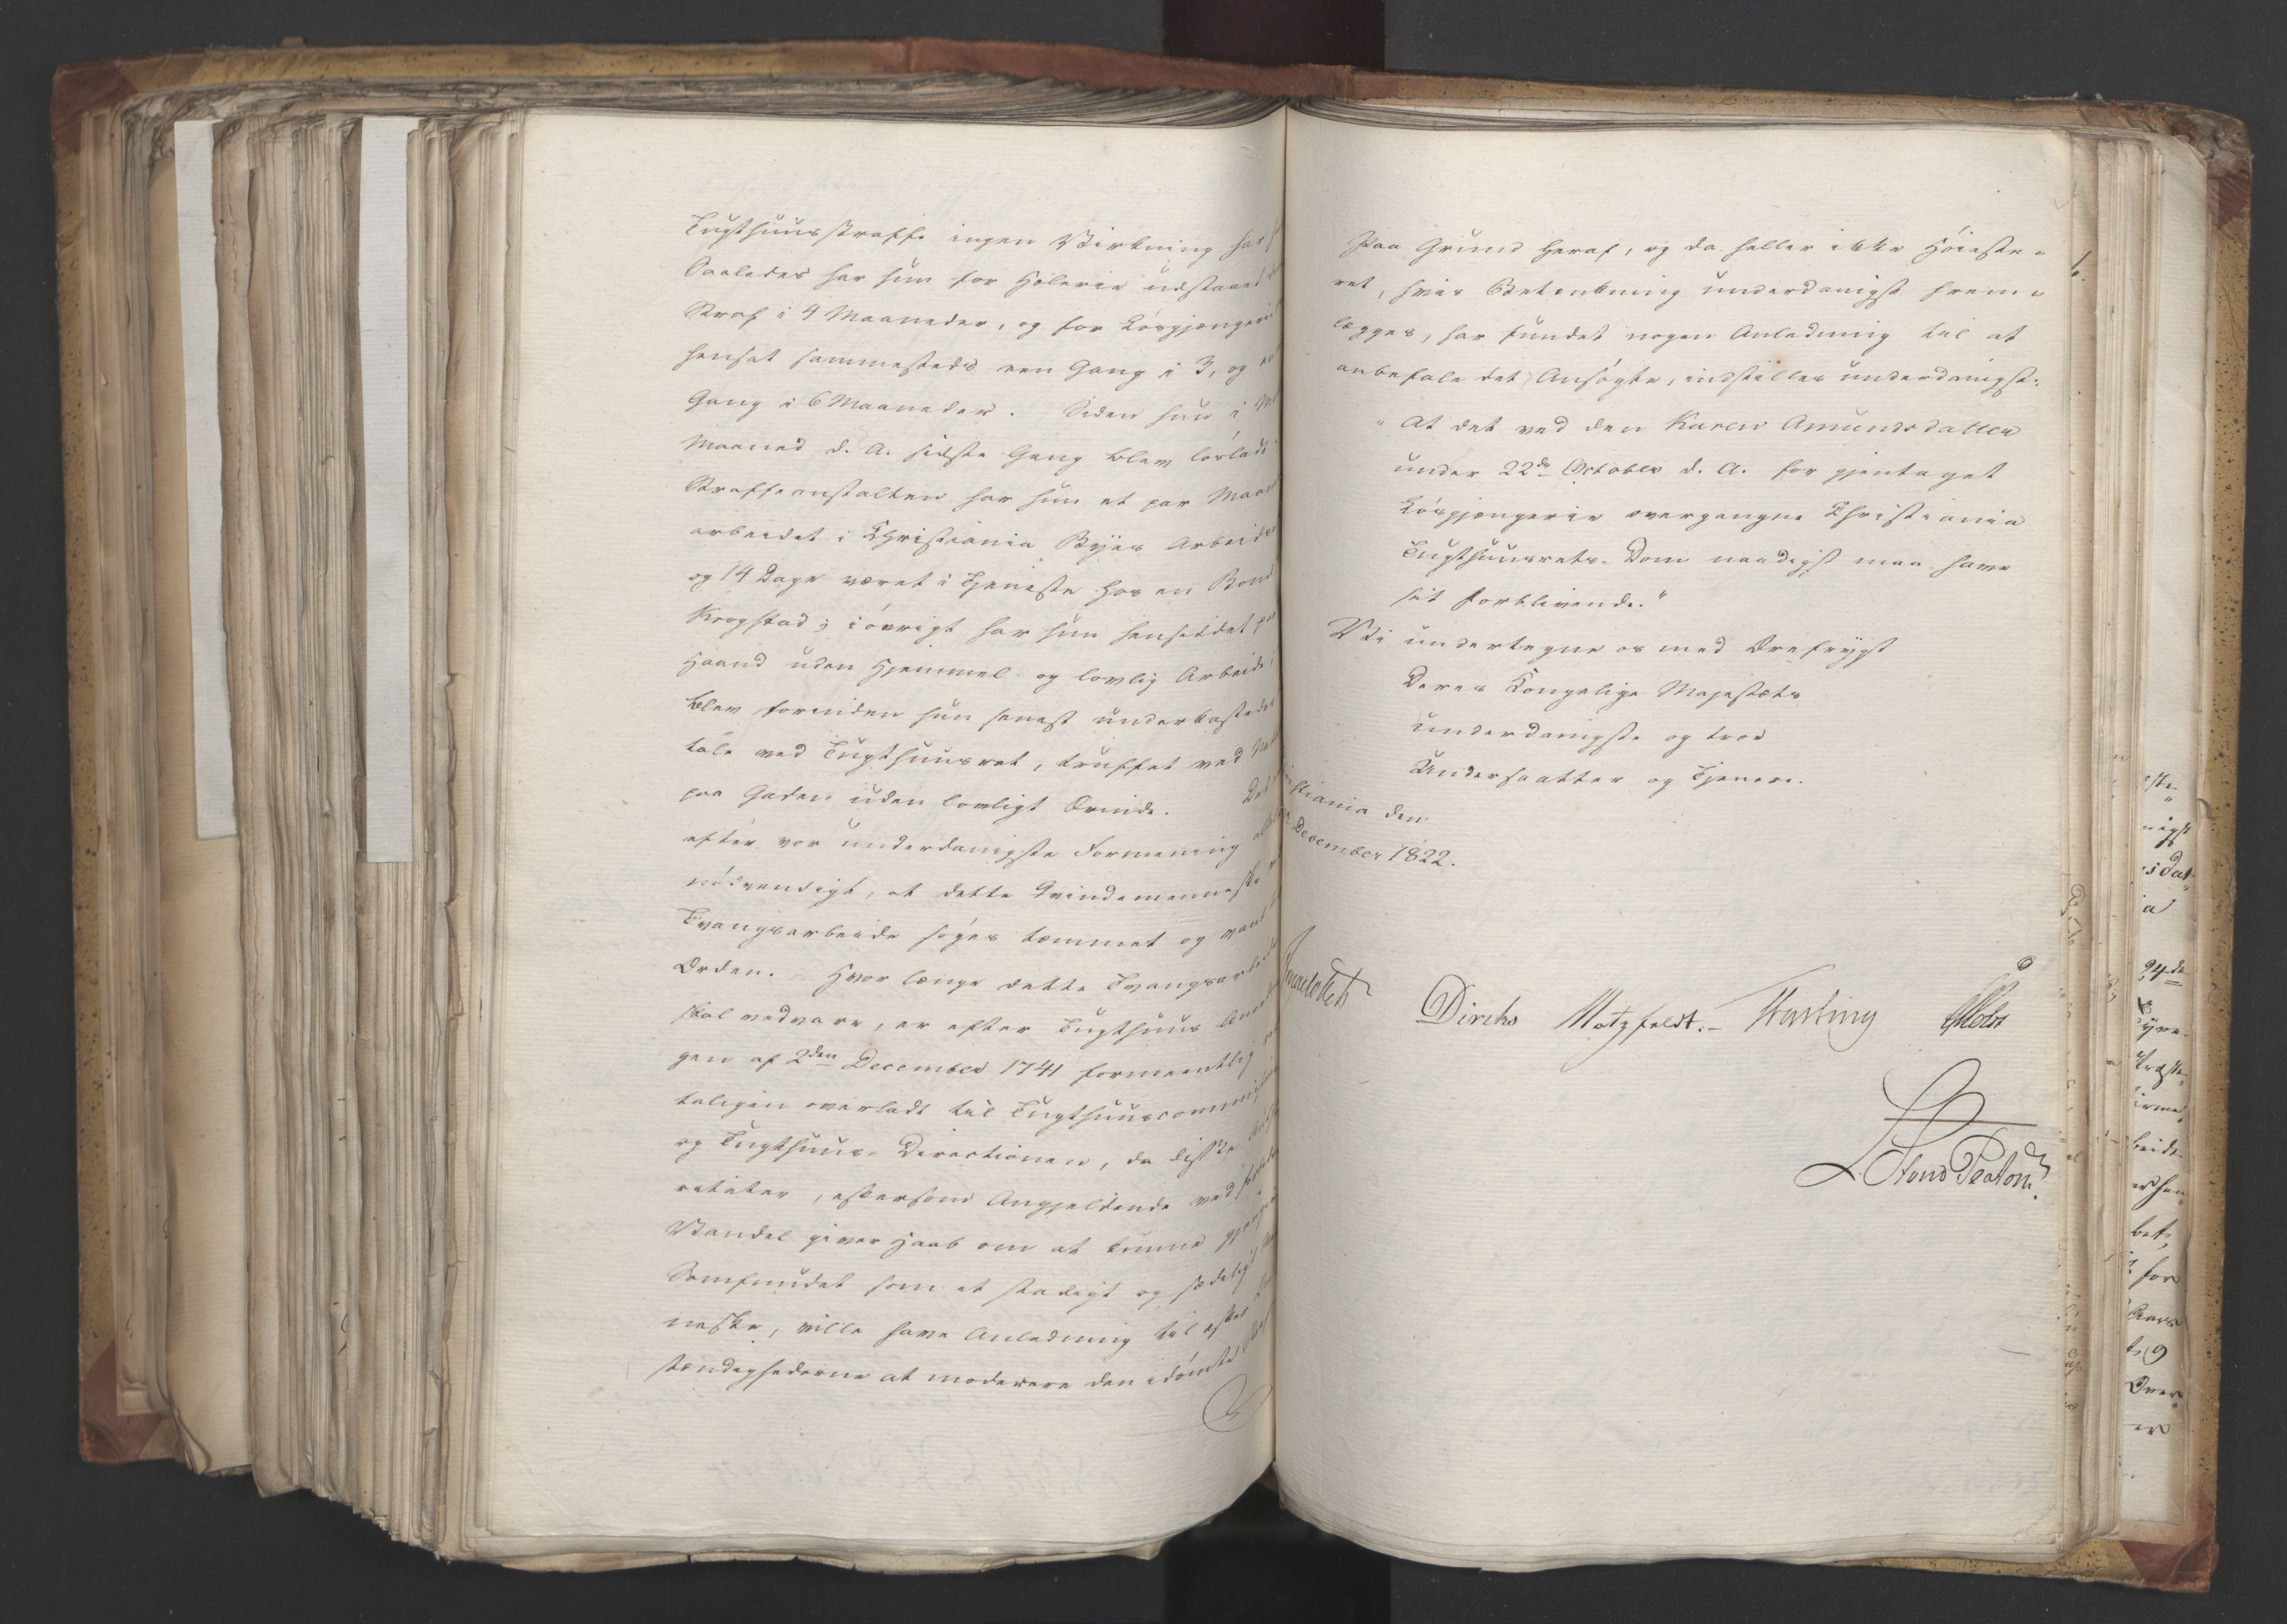 Tugthuusstraffe ingen Virkning har
Saaledes har hun for Hølerie udstaaet
Straf i 4 Maaneder, og for Løsgjængerie
hensat sammesteds een Gang i 3, og en
Gang i 6 Maaneder. Siden hun i
Maaned d. A. sidste Gang blev løsladt
Straffeanstalten har hun et par Maan
arbeidet i Christiania Byes Arbeids
og 14 Dage været i Tjeneste hos en Bond
Krogstad; iøvrigt har hun hensiddet paa
Haand uden Hjemmel og lovlig Arbeide,
blev forinden hun senest underkastedes
tale ved Tugthuusret, truffet ved
paa Gaden uden lovligt Ærinde. Det
efter vor underdanigste Formening
nødvendigt, at dette Qvindemenneske
Tvangsarbeide søges tæmmet og vant
Orden. Hvor længe dette Tvangsarbeide
skal vedvare, er efter Tugthuus
gen af 2den December 1741 formeentlig
teligen overladt til Tugthuuscommis
og Tugthuus-Directionen, da disse
riteter, eftersom Angjeldende ved
Vandel giver Haab om at kunne
Samfundet som et stadigt og sædeligt
neske, ville have Anledning til efter
stændighederne at moderere den idømte
Paa Grund heraf, og da heller ikke Høieste-
ret, hvis Betænkning underdanigst frem-
lægges, har fundet nogen Anledning til at
anbefale det Ansøgte, indstilles underdanigst:
"At det ved den Karen Amundsdatter
under 22de October d. A. for gjentaget
Løsgjængerie overgangne Christiania
Tugthuusrets-Dom naadigst maa have
sit Forblivende."
Vi undertegne os med Ærefrygt
Deres Kongelige Majestæts
underdanigste og troe
Undersaatter og Tjenere.
istiania den
December 1822.
Diriks Motzfeldt.- Fasting Holst